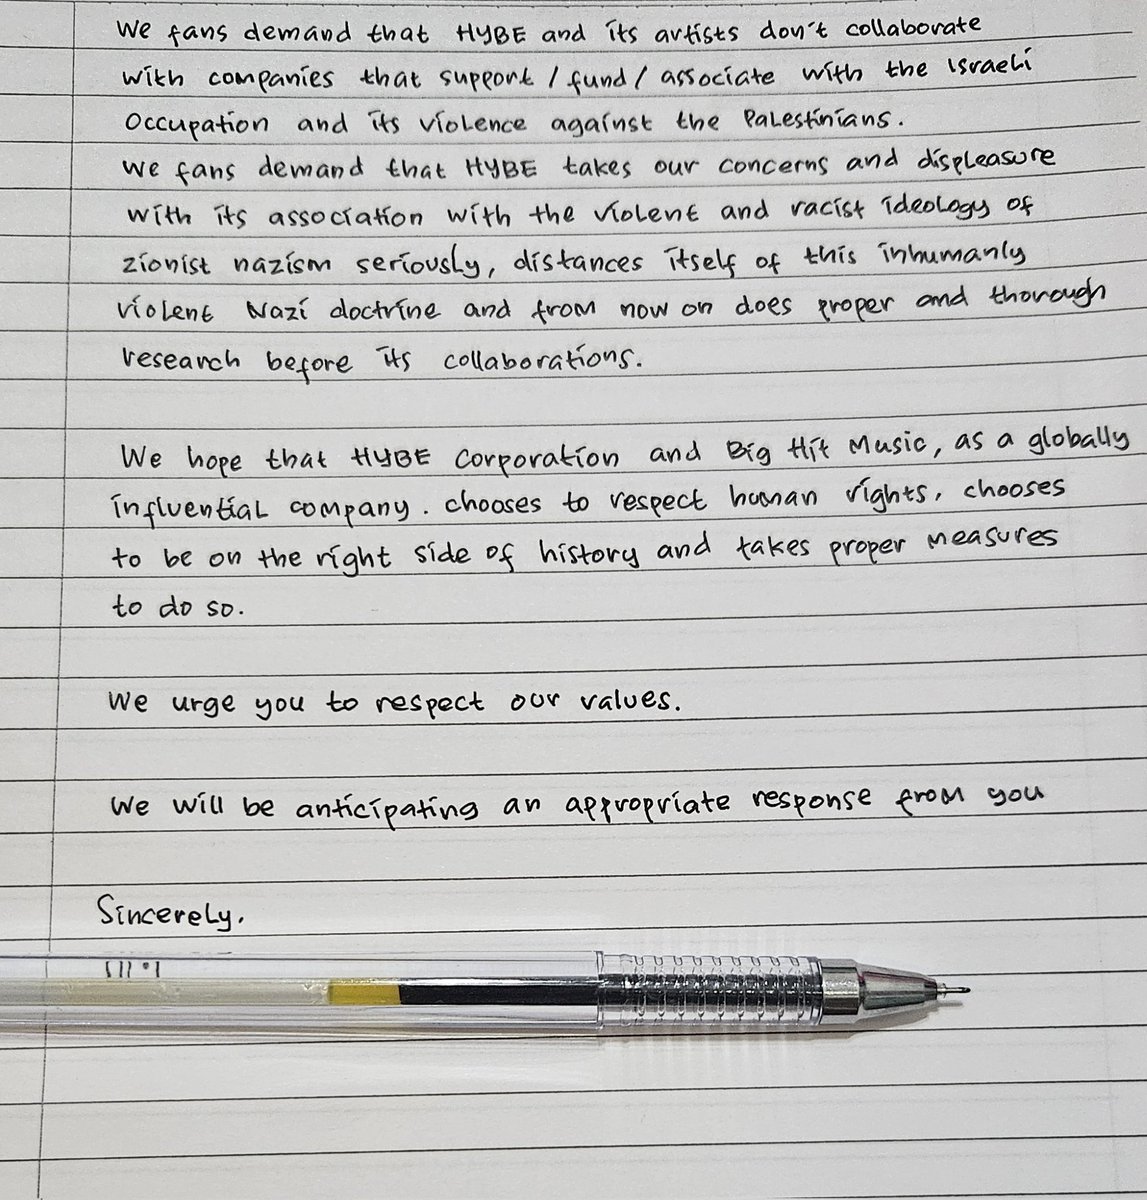 We fans demand that HYBE and its artists don't collaborate
with companies that support / fund / associate with the Israeli
Occupation and its violence against the Palestinians.
We fans demand that HYBE takes our concerns and displeasure
with its association with the violent and racist ideology of
zionist nazism seriously, distances itself of this inhumanly
violent Nazi doctrine and from now on does proper and thorough
research before its collaborations.
We hope that HYBE Corporation and Big Hit Music, as a globally
influential company. chooses to respect human rights, chooses
to be on the right side of history and takes proper measures
to do so.
We urge you to respect our values.
We will be anticipating an appropriate response from you
Sincerely.